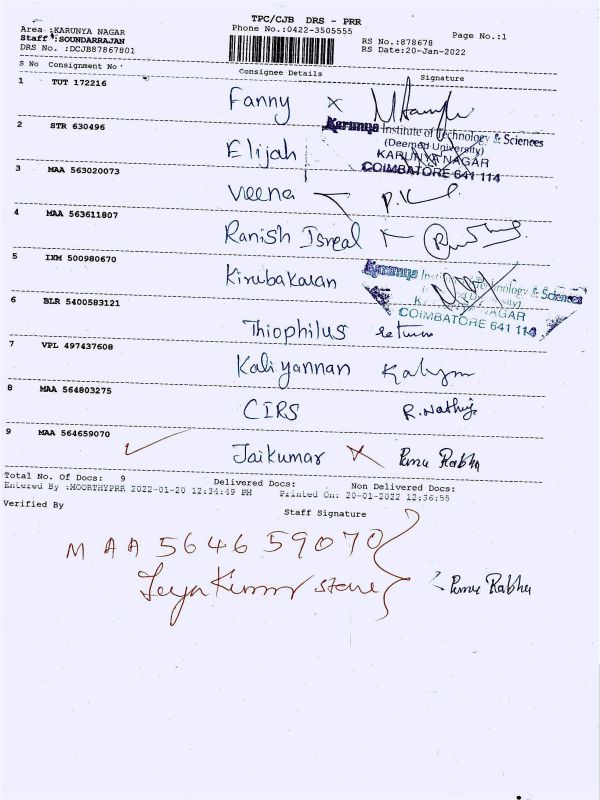 TPC/CJB DRS - PRR
Area :KARUNYA NAGAR
Phone No.:0422-3505555
Page No.:1
Staff :SOUNDARRAJAN
RS No.:878678
DRS No. :DCJB87867801
RS Date:20-Jan-2022
S No Consignment No Consignee Details Signature
1 TUT 172216 Fanny x
Karunya Institute of Technology & Sciences
(Deemed University)
KARUNYA NAGAR
COIMBATORE 641 114
2 STR 630496 Elijah
3 MAA 563020073 Veena P.K
4 MAA 563611807 Ranish Isreal
5 IXM 500980670 Kirubakaran
Karunya Institute of Technology & Sciences
(Deemed University)
KARUNYA NAGAR
COIMBATORE 641 114
6 BLR 5400583121 Thiophilus return
7 VPL 497437608 Kaliyannan
8 MAA 564803275 CIRS R.Nathiy
9 MAA 564659070 Jaikumar x
Total No. Of Docs: 9 Delivered Docs: Non Delivered Docs:
Entered By :MOORTHYPRR 2022-01-20 12:34:49 PM Printed On: 20-01-2022 12:36:58
Verified By Staff Signature
MAA564659070